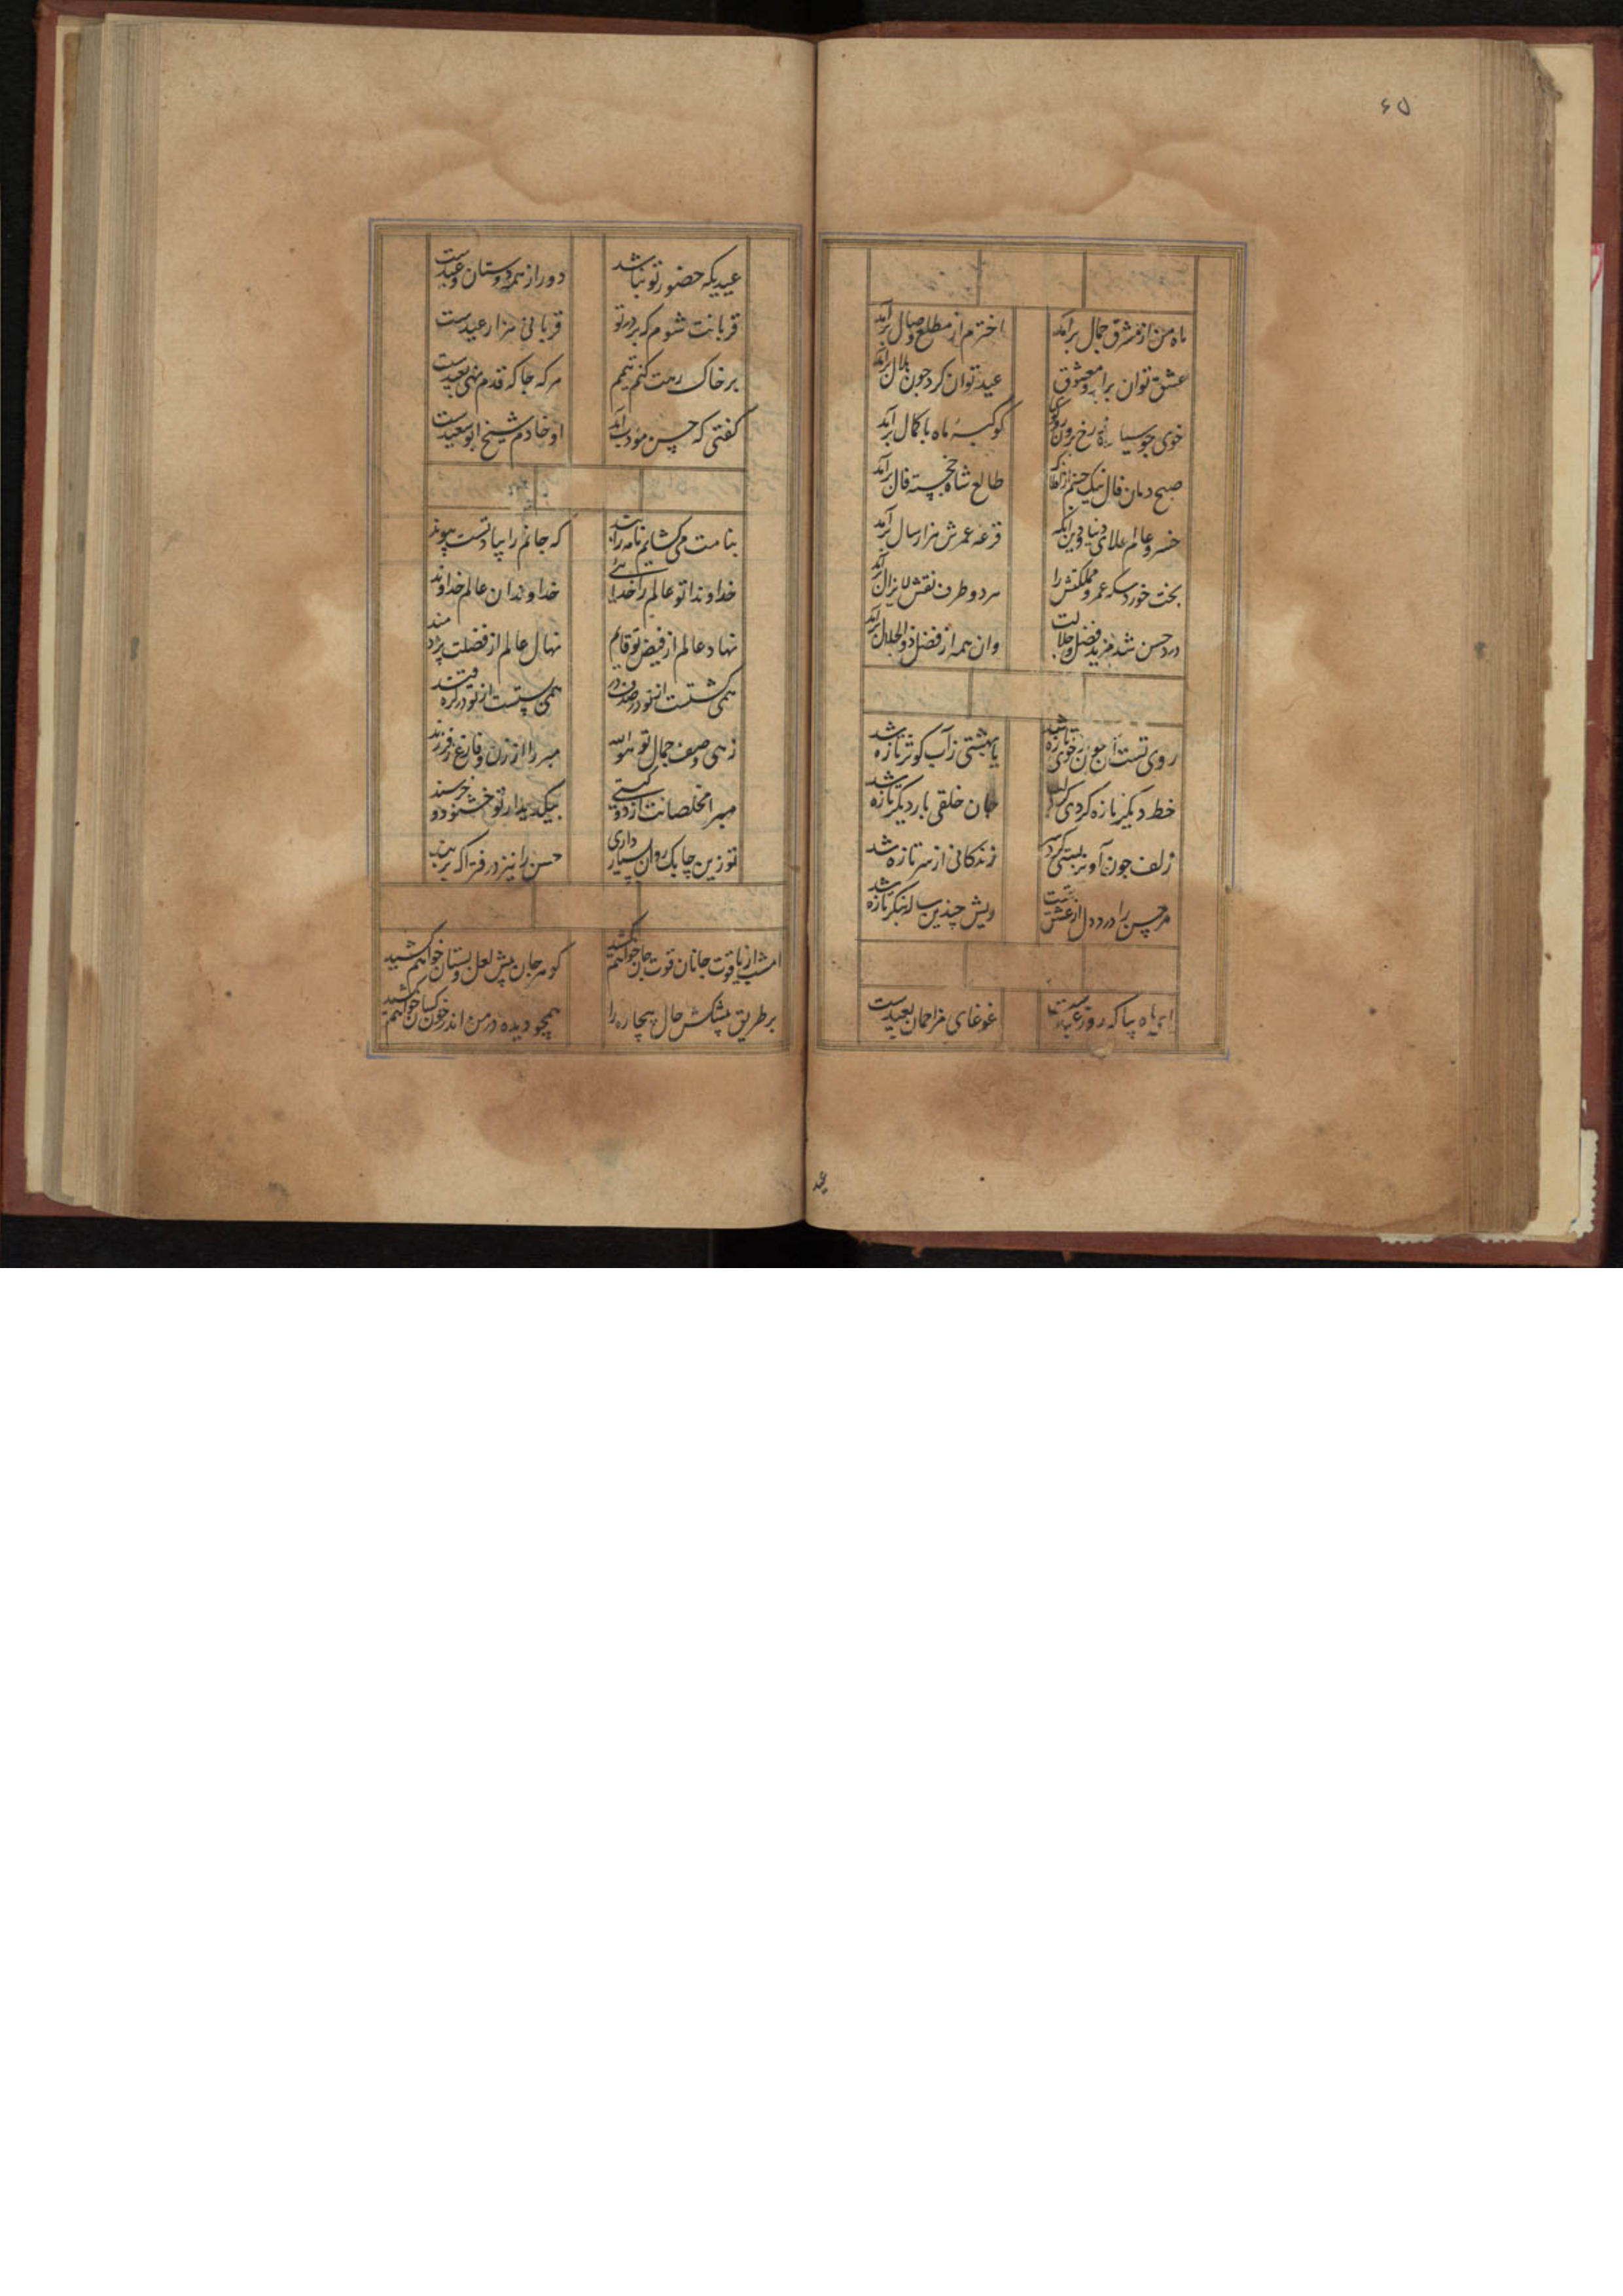 ۶۵
ماه من از مشرق جمال برآمد اخترم از مطلع وصال برآمد
عشق توان برابروی معشوق عید توان کرد چون هلال برآمد
خوی چو سیاره رخ برون کوکبهٔ ماه با کمال برآمد
صبح دمان فال نیک طالع شاه خجسته فال برآمد
خسرو عالم علای دنیا و دین آنکه قرعه عمرش هزار سال برآمد
بخت خورد سکه عمر و مملکتش را هر دو طرف نقش لایزال برآمد
درد حسن شد مزید فضل وان همه از فضل ذوالجلال برآمد
روی تست آن چون ز خوی تازه شد یا بهشتی زآب کوثر تازه شد
خط دیگر تازه کردی جان خلقی بار دیگر تازه شد
زلف چون آویز بستی زندگانی از سر تازه شد
مر حسن را درد دل از عشقت ریش چندین ساله بنگر تازه شد
ای ماه بیا که روز عیدست غوغای مزاحمان بعیدست
عیدیکه حضور تو نباشد دور از همه دوستان وعیدست
قربانت شوم که بر در تو قربانی هزار عیدست
بر خاک رهت کنم تیمم هر که جا که قدم نهی بعیدست
گفتی که حسن مؤدب آمد او خادم شیخ ابوسعیدست
بنامت می‌گشایم نامه را بند که جانم را بیادتست پیوند
خداوندا تو عالم را خدائی خداوندان عالم خداوند
نهاد عالم از فیض تو قائم نهال عالم از فضلت برومند
همی گشتست از تو در صدف در همی بستست از تو در گره قند
زهی وصف جمال تو هو الله مبرا از زن و فارغ ز فرزند
مبرا مخلصانت از دو گیتی بیک دیدار تو خشنود و خرسند
تو زین چابک روان بسیار داری حسن را نیز در فتراک بربند
امشب از یاقوت جانان قوت جان خواهم کشید گوهر جان پیش لعل دلستان خواهم کشید
بر طریق پیشکش حال بیچاره را همچو دیده در من اندر خون کسان خواهم کشید